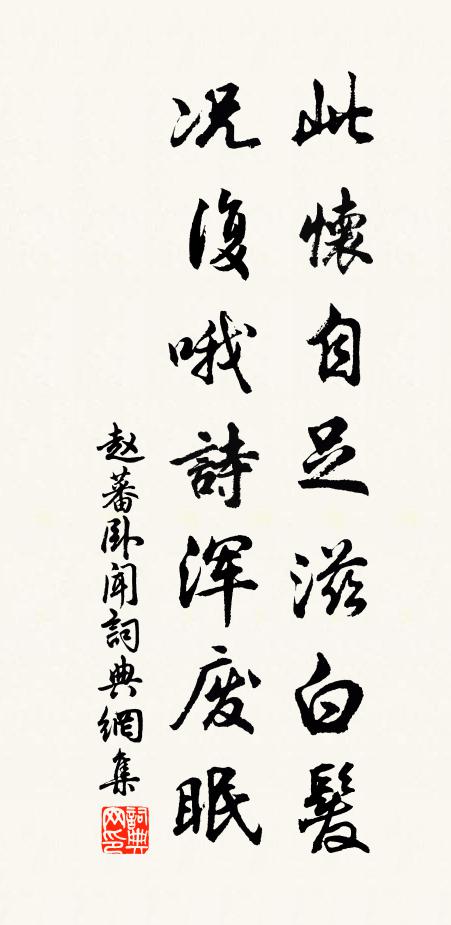 此懷自足滋白髮
況復哦詩渾废眠
赵蕃卧闻詞典網集
詞典网印